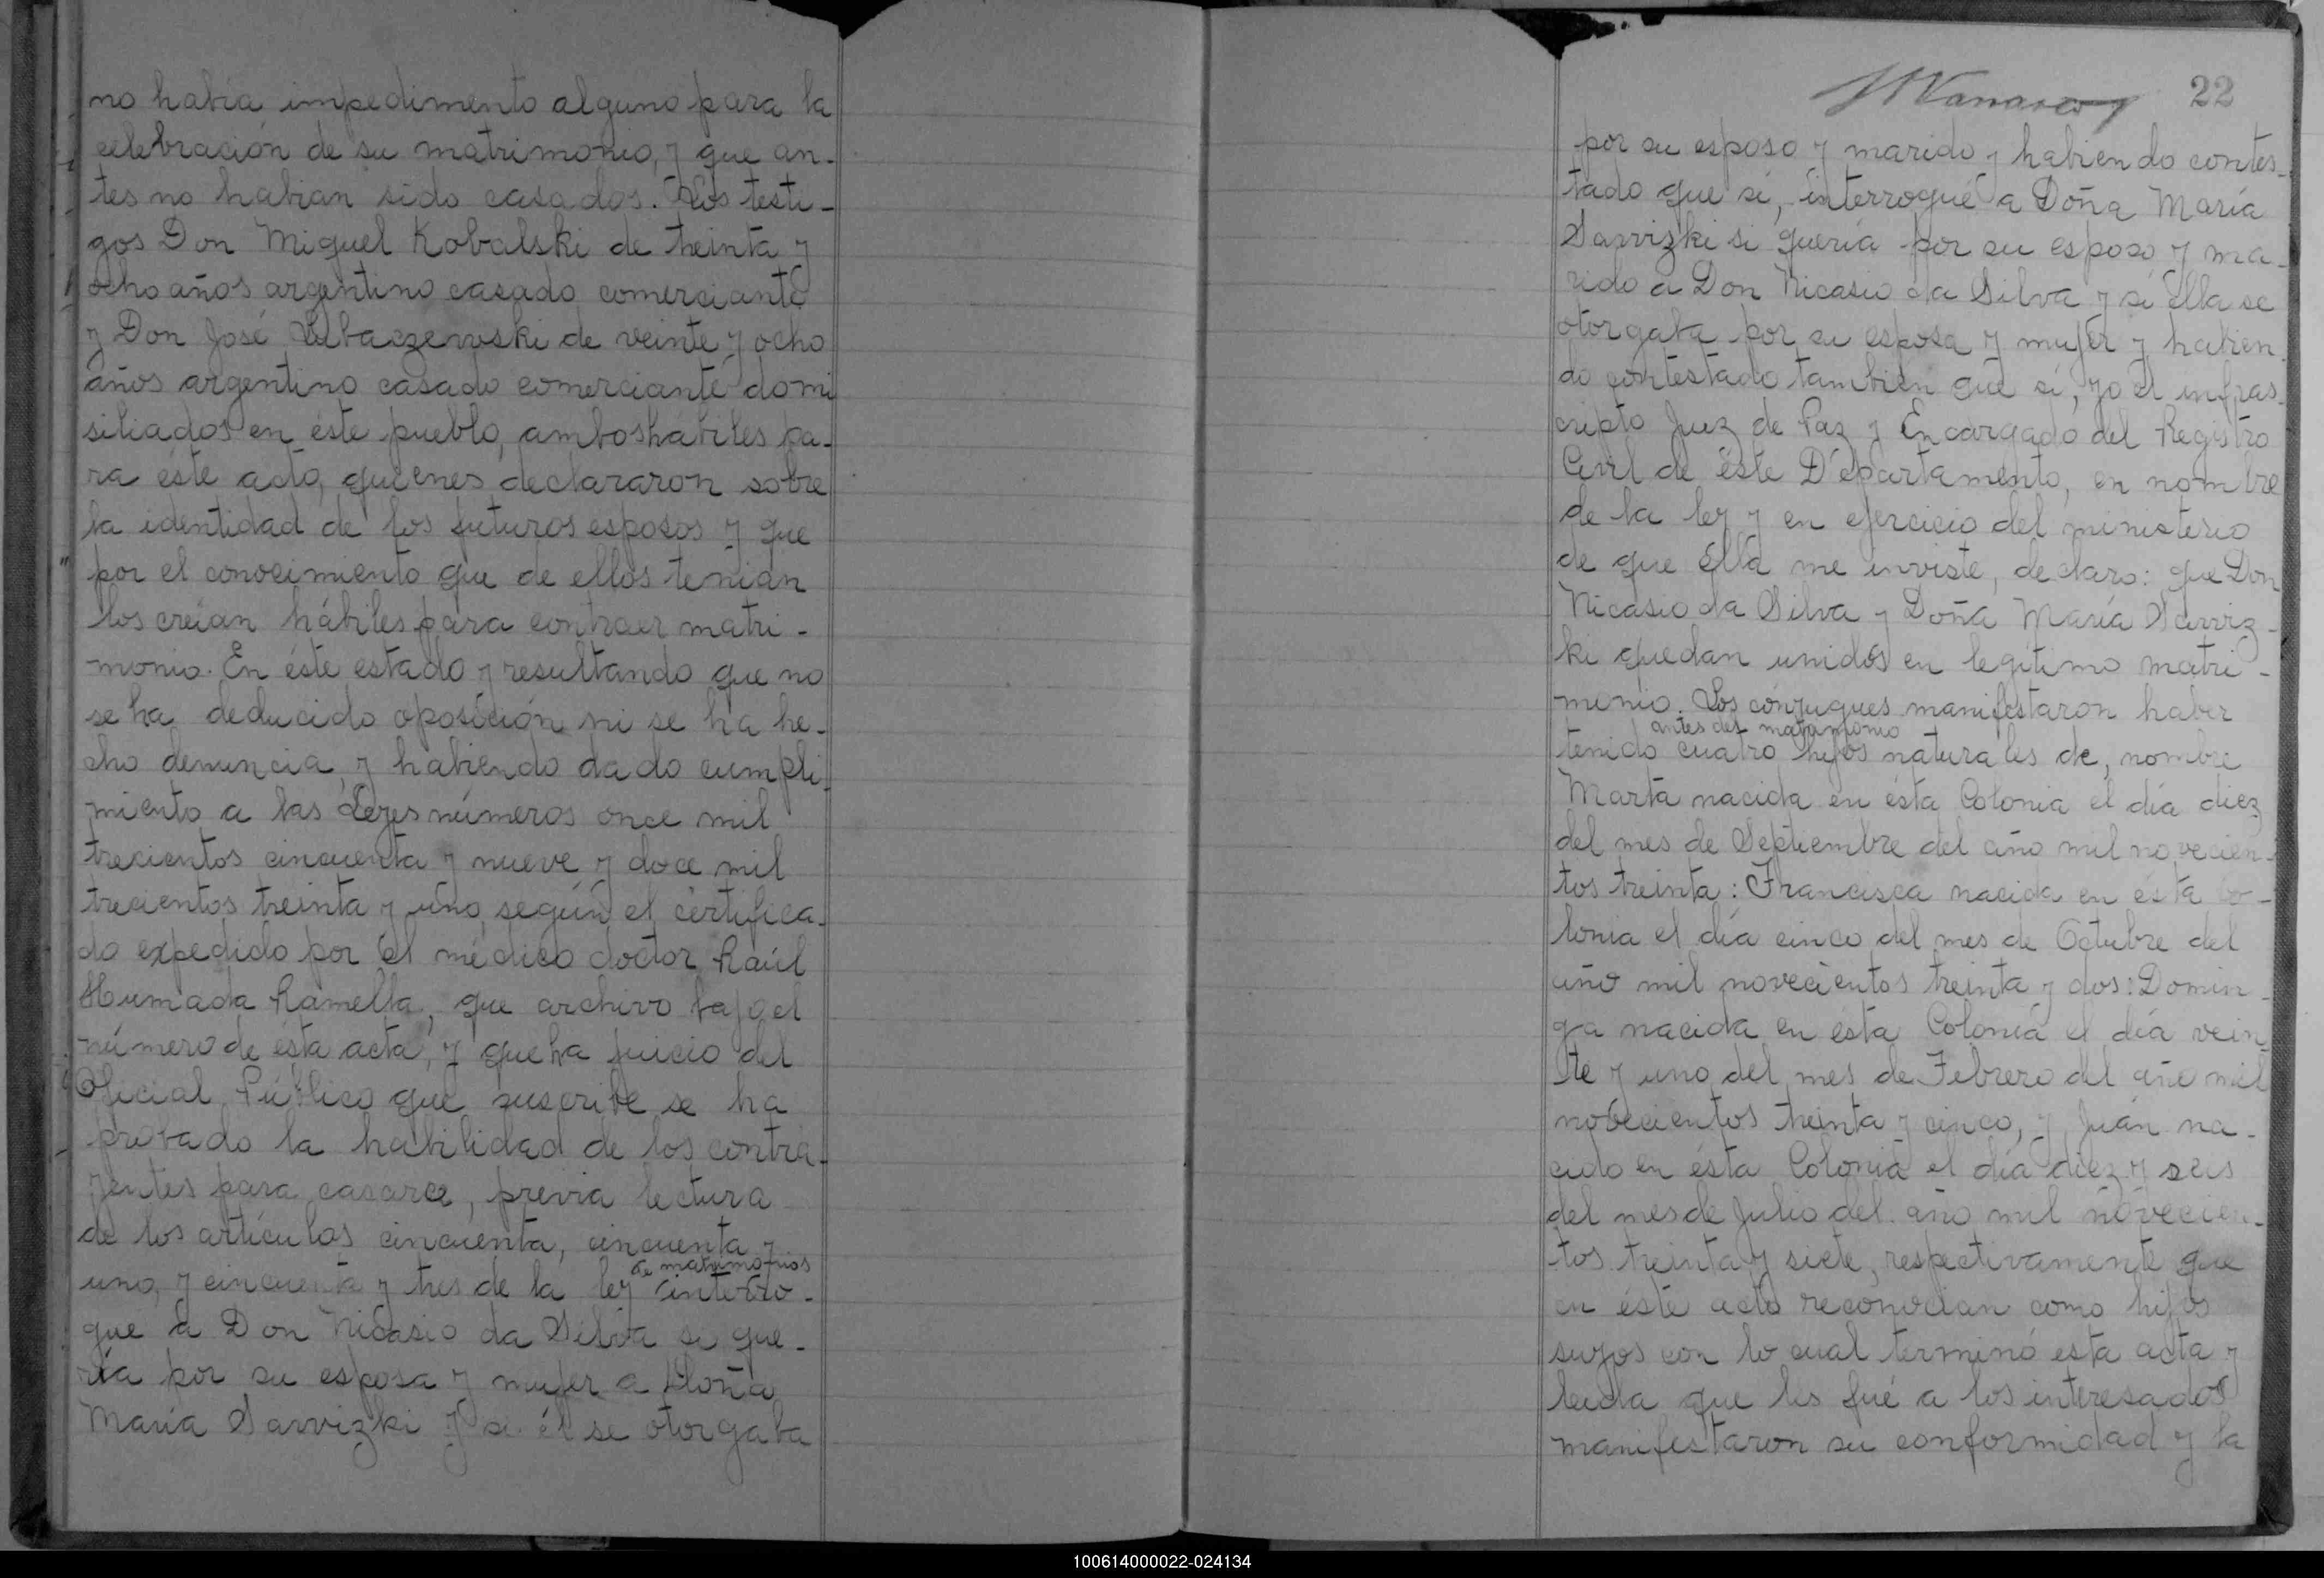 no había impedimento alguno para la
celebración de su matrimonio, y que an-
tes no habian sido casados. Los testi-
gos Don Miguel Kobalski de treinta y
ocho años argentino casado comerciante
y Don José Lubaczewski de veinte y ocho
años argentino casado comerciante domi
siliados en éste pueblo, ambos hábiles pa-
ra éste acto, quienes declararon sobre
la identidad de los futuros esposos y que
por el conocimiento que de ellos tenian
los creían hábiles para contraer matri-
monio. En éste estado y resultando que no
se ha deducido oposición ni se ha he-
cho denuncia, y habiendo dado cumpli-
miento a las Leyes números once mil
trecientos cincuenta y nueve y doce mil
trecientos treinta y uno, según el certifica-
do expedido por el médico doctor Raúl
Humada Ramella, que archivo bajo el
número de ésta acta, y que ha juicio del
Oficial Público que suscribe se ha
probado la habilidad de los contra-
yentes para casarce, previa lectura
de los artículos cincuenta, cincuenta y
de matrimonios
uno, y cincuenta y tres de la ley interro-
que a Don Nicasio da Silva si que-
ría por su esposa y mujer a Doña
María Sawizki y si él se otorgaba
22
por su esposo y marido y habiendo contes-
tado que sí, interrogué a Doña María
Sawizki si quería por su esposo y ma-
rido a Don Nicasio da Silva y si ella se
otorgaba por su esposa y mujer y habien-
do contestado tambien que sí, yo el infras-
cripto Juez de Paz y Encargado del Registro
Civil de éste Departamento, en nombre
de la ley y en ejercicio del ministerio
de que élla me inviste, declaro: que Don
Nicasio da Silva y Doña María Sawiz-
ki quedan unidos en legítimo matri-
menio. Los conjugues manifestaron haber
antes del matrimonio
tenido cuatro hijos naturales de, nombre
Marta nacida en ésta Colonia el día diez
del mes de Septiembre del año mil novecien-
tos treinta: Francisca nacida en ésta co-
lonia el día cinco del mes de Octubre del
año mil novecientos treinta y dos: Domin-
ga nacida en ésta Colonia el día vein-
te y uno del mes de Febrero del año mil
novecientos treinta y cinco, y Juán na-
cido en ésta Colonia el día diez y seis
del mes de Julio del año mil novecien-
tos treinta y siete, respectivamente que
en éste acto reconocian como hijos
suyos con lo cual terminó esta acta y
leída que les fué a los interesados
manifestaron su conformidad y la
100614000022-024134